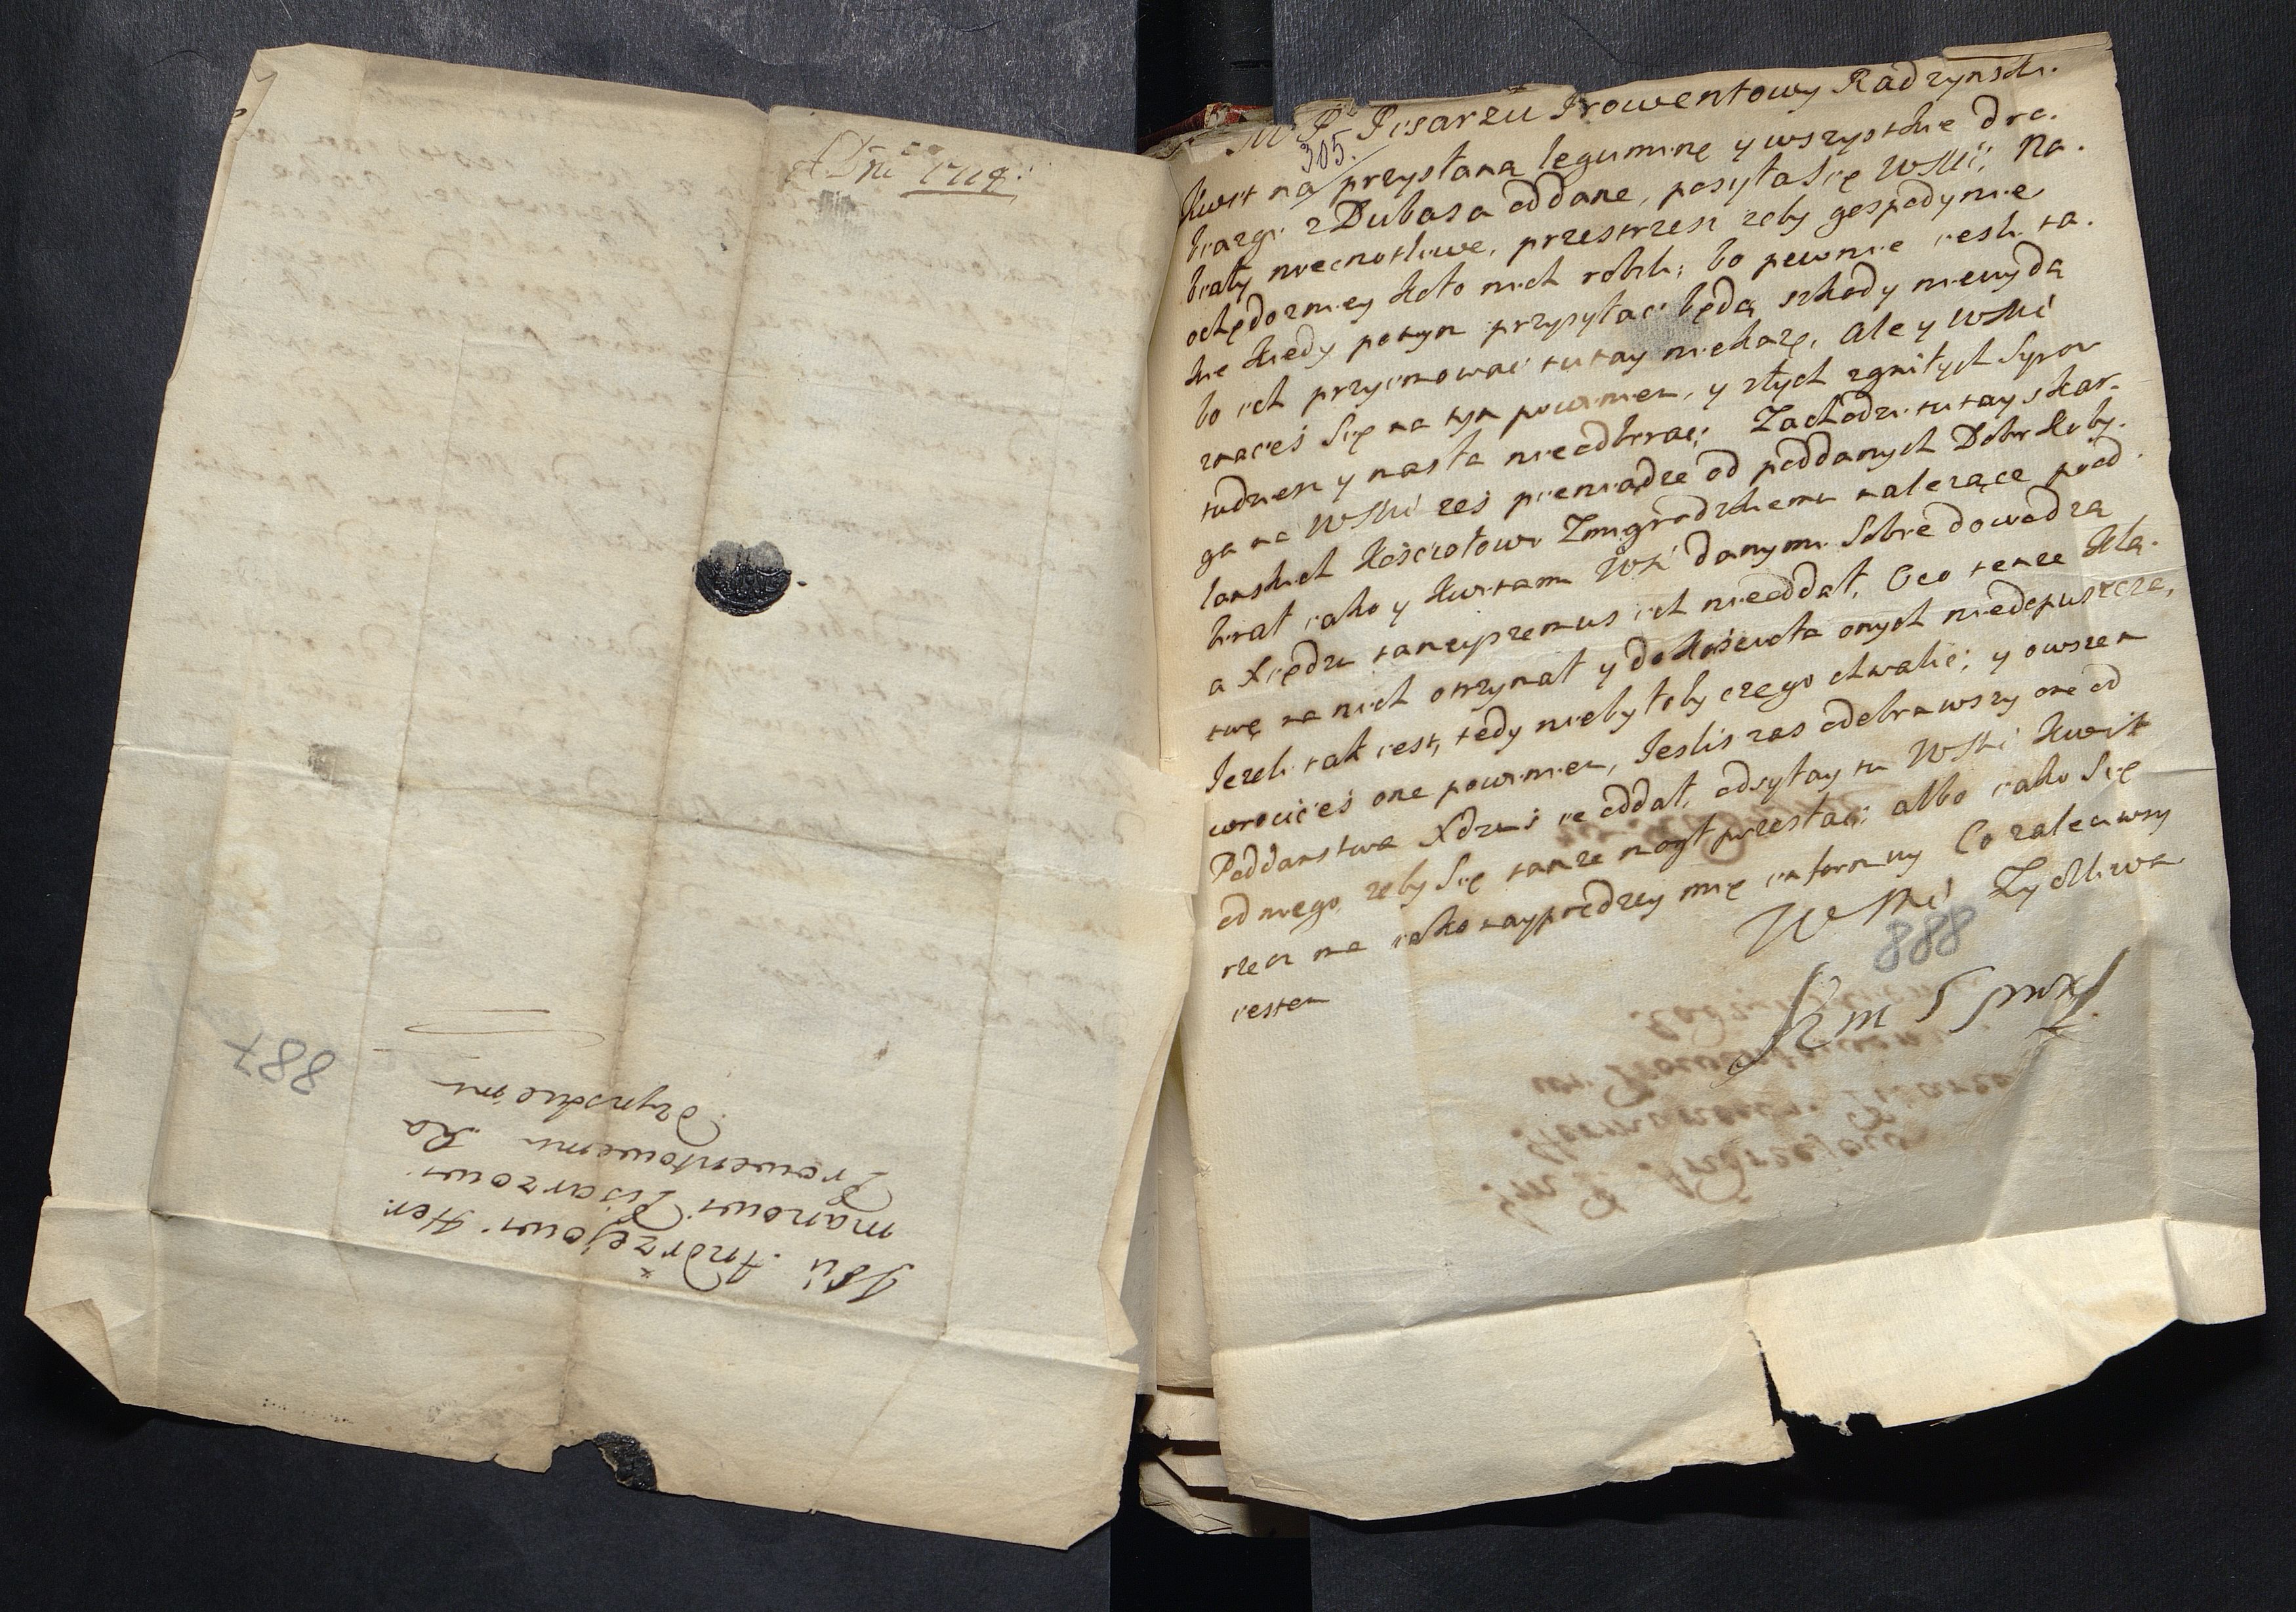 A Dni 1714.
887
JPu Andrzejowi Her
manowi Pisarzowi
Prowentowemu Ra
dzynskiemu
M P Pisarzu Prowentowy Radzynski.
305.
Kwit na przysłaną leguminę y wszystkie dro.
biazgi z Dubasa oddane, posyła się WMci; Na.
biały niecnotliwe, przestrzesz zeby gospodynie
ochędozniey koło nich robili; bo pewnie iesli ta.
kie kiedy potym przysyłac będą szkody nieuydą
bo ich przyimowac tutay niekazę, ale y WMci
znacieś się na tym powinien, y złych zgniłych Syrow
tudziesz y masła nieodbirac; Zachodzi tutay skar.
ga na WMci ześ pieniądze od poddanych Dobr Koby.
lanskich Kościołowi Zmigrodzkiemu nalezące pood.
birał iako y kwitami WMci danymi sobie dowodzą
a Xiędzu tameyszemus ich nieoddał, Oco tenze Klą.
twę na nich otrzymał y do Kościoła onych niedopuszcza,
Jezeli tak iest, tedy niebyłoby czego chwalić; y owszem
wrocićeś one powinien, Jeslis zas odebrawszy one od
Poddanstwa Xdzuś ie oddał, odsyłay tu WMci Kwit
od niego, zeby się tamze mogł przestac; albo iako się
rzecz ma iako nayprędzey mię informuy Co zaleciwszy
iestem
WMci Zyczliwa
888
JPu Andrzejowi
Hermanowi Pisarzo
wi Prowentowemu
Radzynskiemu